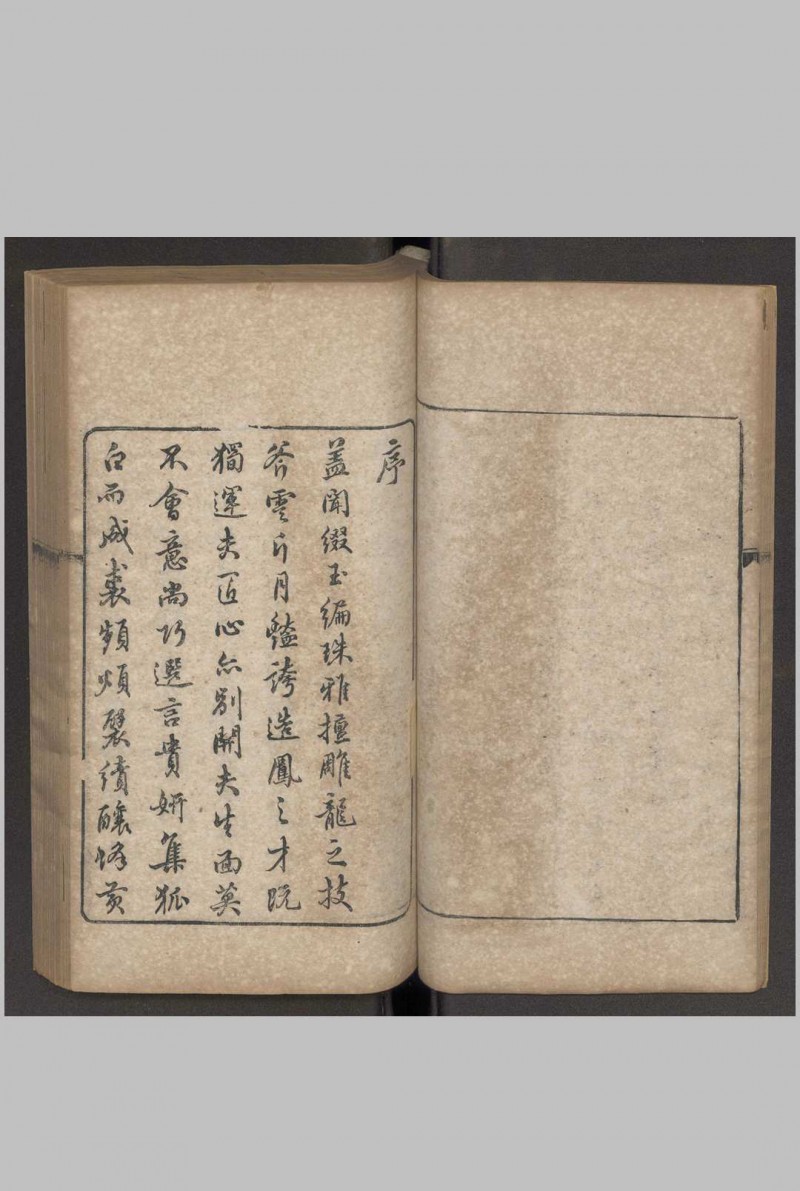 序
蓋聞綴玉編珠雅擅雕龍之技
斧雲斤月豔誇造鳳之才既
獨運夫匠心亦別開夫生面莫
不會意尚巧選言貴妍集狐
白而成裘頻煩襞績釀蜂黃